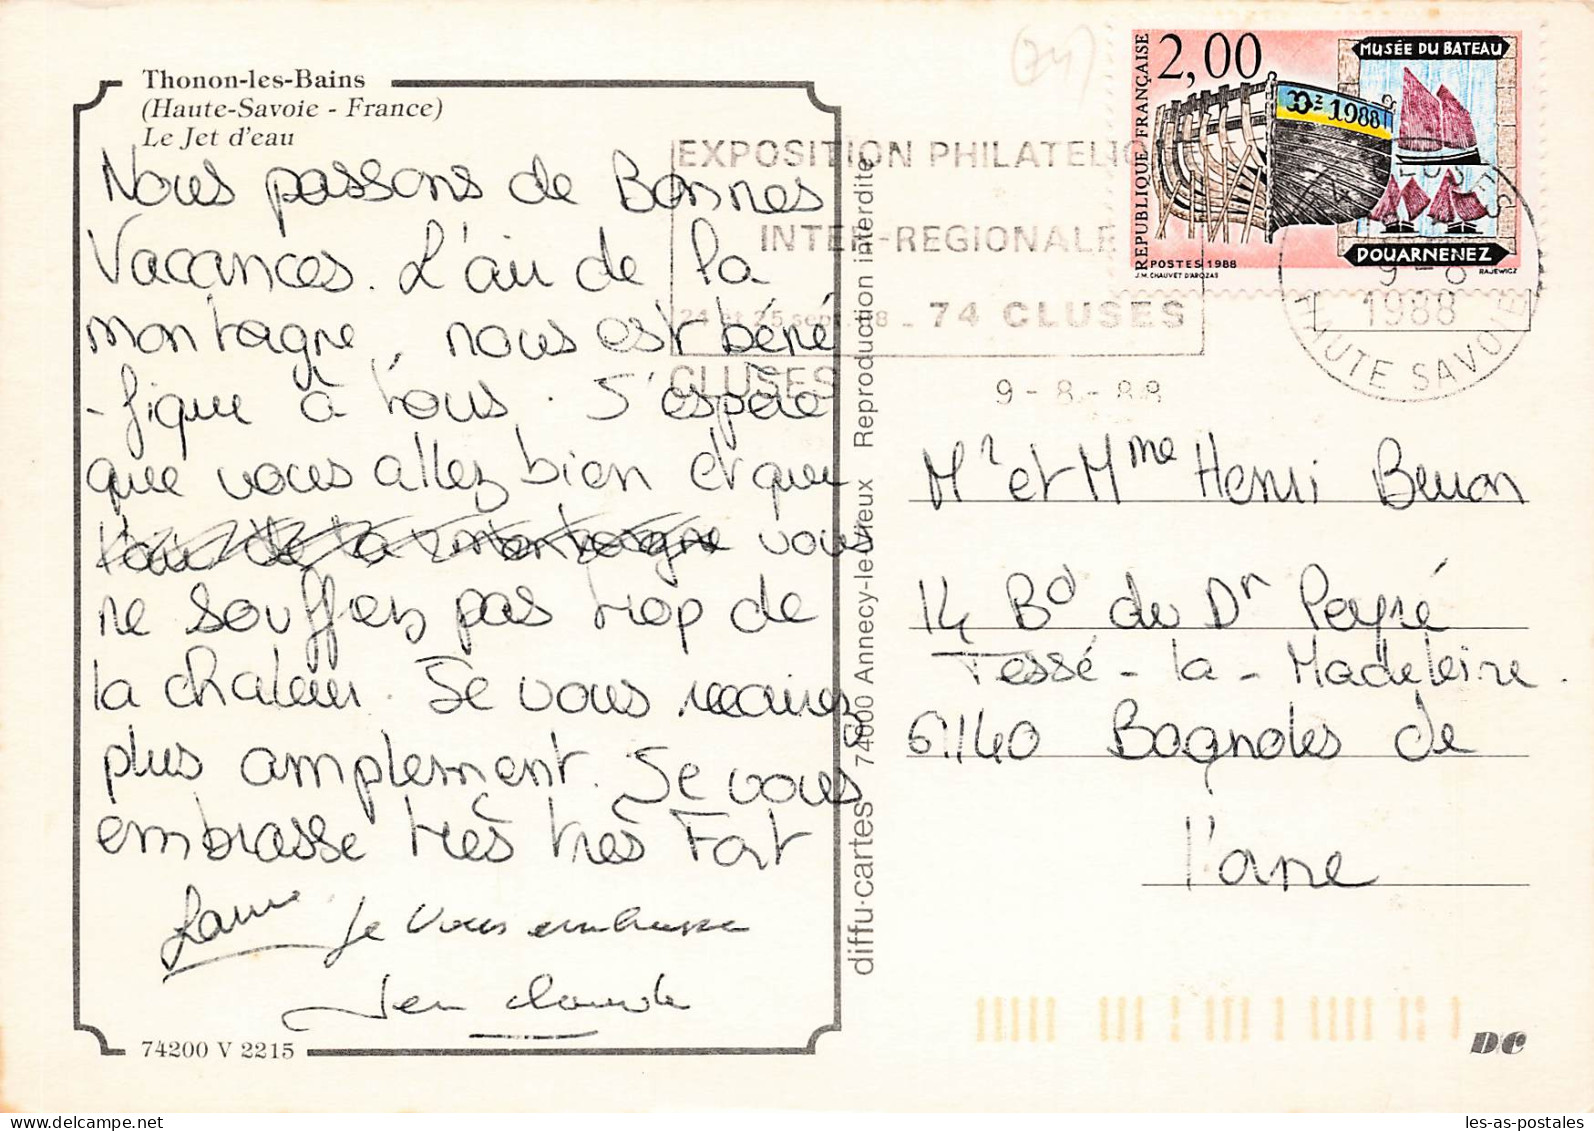 Thonon-les-Bains
(Haute-Savoie - France)
Le Jet d'eau
Nous passons de Bonnes
Vacances. L'air de la
montagne, nous est béné
-fique à tous. J'espère
que vous allez bien et que
l'air de la montagne vous
ne souffrez pas trop de
la chaleur. Je vous
plus amplement. Je vous
embrasse très très Fort
Je vous embrasse
Jean Claude
74200 V 2215
diffu-cartes 74000 Annecy-le-Vieux Reproduction interdite
(74)
EXPOSITION PHILATELIQ
INTER-REGIONALE
24 et 25 sept. 88 - 74 CLUSES
CLUSES
9-8-88
REPUBLIQUE FRANÇAISE
2,00
Dz 1988
MUSÉE DU BATEAU
DOUARNENEZ
POSTES 1988
J.M. CHAUVET D'AROZAS
RAJEWICZ
1988
HAUTE SAVOIE
Mr et Mme Henri
14 Bd du Dr Peyré
Tessé-la-Madeleine.
61140 Bagnoles de
l'orne
DC
les-as-postales.com